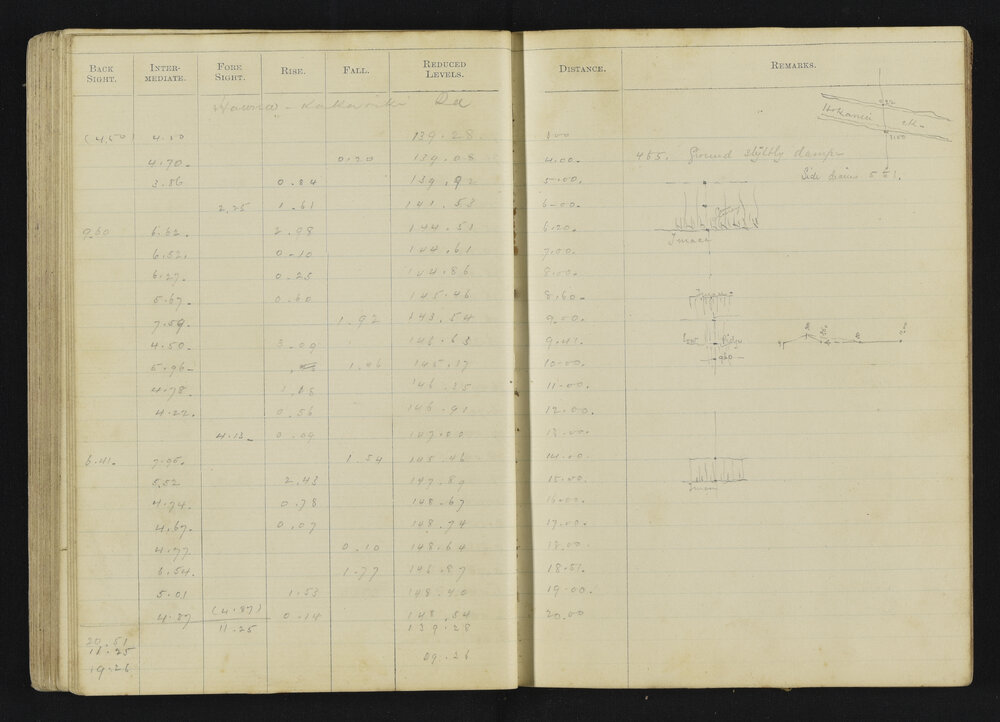 BACK SIGHT. INTER- MEDIATE. FORE SIGHT. RISE. FALL. REDUCED LEVELS. DISTANCE. REMARKS.
Rd
(4.50) 4.50 139.28 300
4.70 0.20 139.08 4.00
3.86 0.84 139.92 5.00
2.25 1.61 141.53 6.00
9.60 6.62 2.98 144.51 6.20
6.52 0.10 144.61 7.00
6.27 0.25 144.86 8.00
5.67 0.60 145.46 8.60
7.59 1.92 143.54 9.00
4.50 3.09 146.63 9.41
5.96 1.46 145.17 10.00
4.78 1.18 146.35 11.00
4.22 0.56 146.91 12.00
4.13 0.09 147.00 13.00
6.41 7.95 1.54 145.46 14.00
5.52 2.43 147.89 15.00
4.74 0.78 148.67 16.00
4.67 0.07 148.74 17.00
4.77 0.10 148.64 18.00
6.54 1.77 146.87 18.51
5.01 1.53 148.40 19.00
4.87 (4.87) 0.14 148.54 20.00
11.25 139.28
20.51
11.25
19.26 09.26
455. Ground slightly damp
Side drains
Ridge